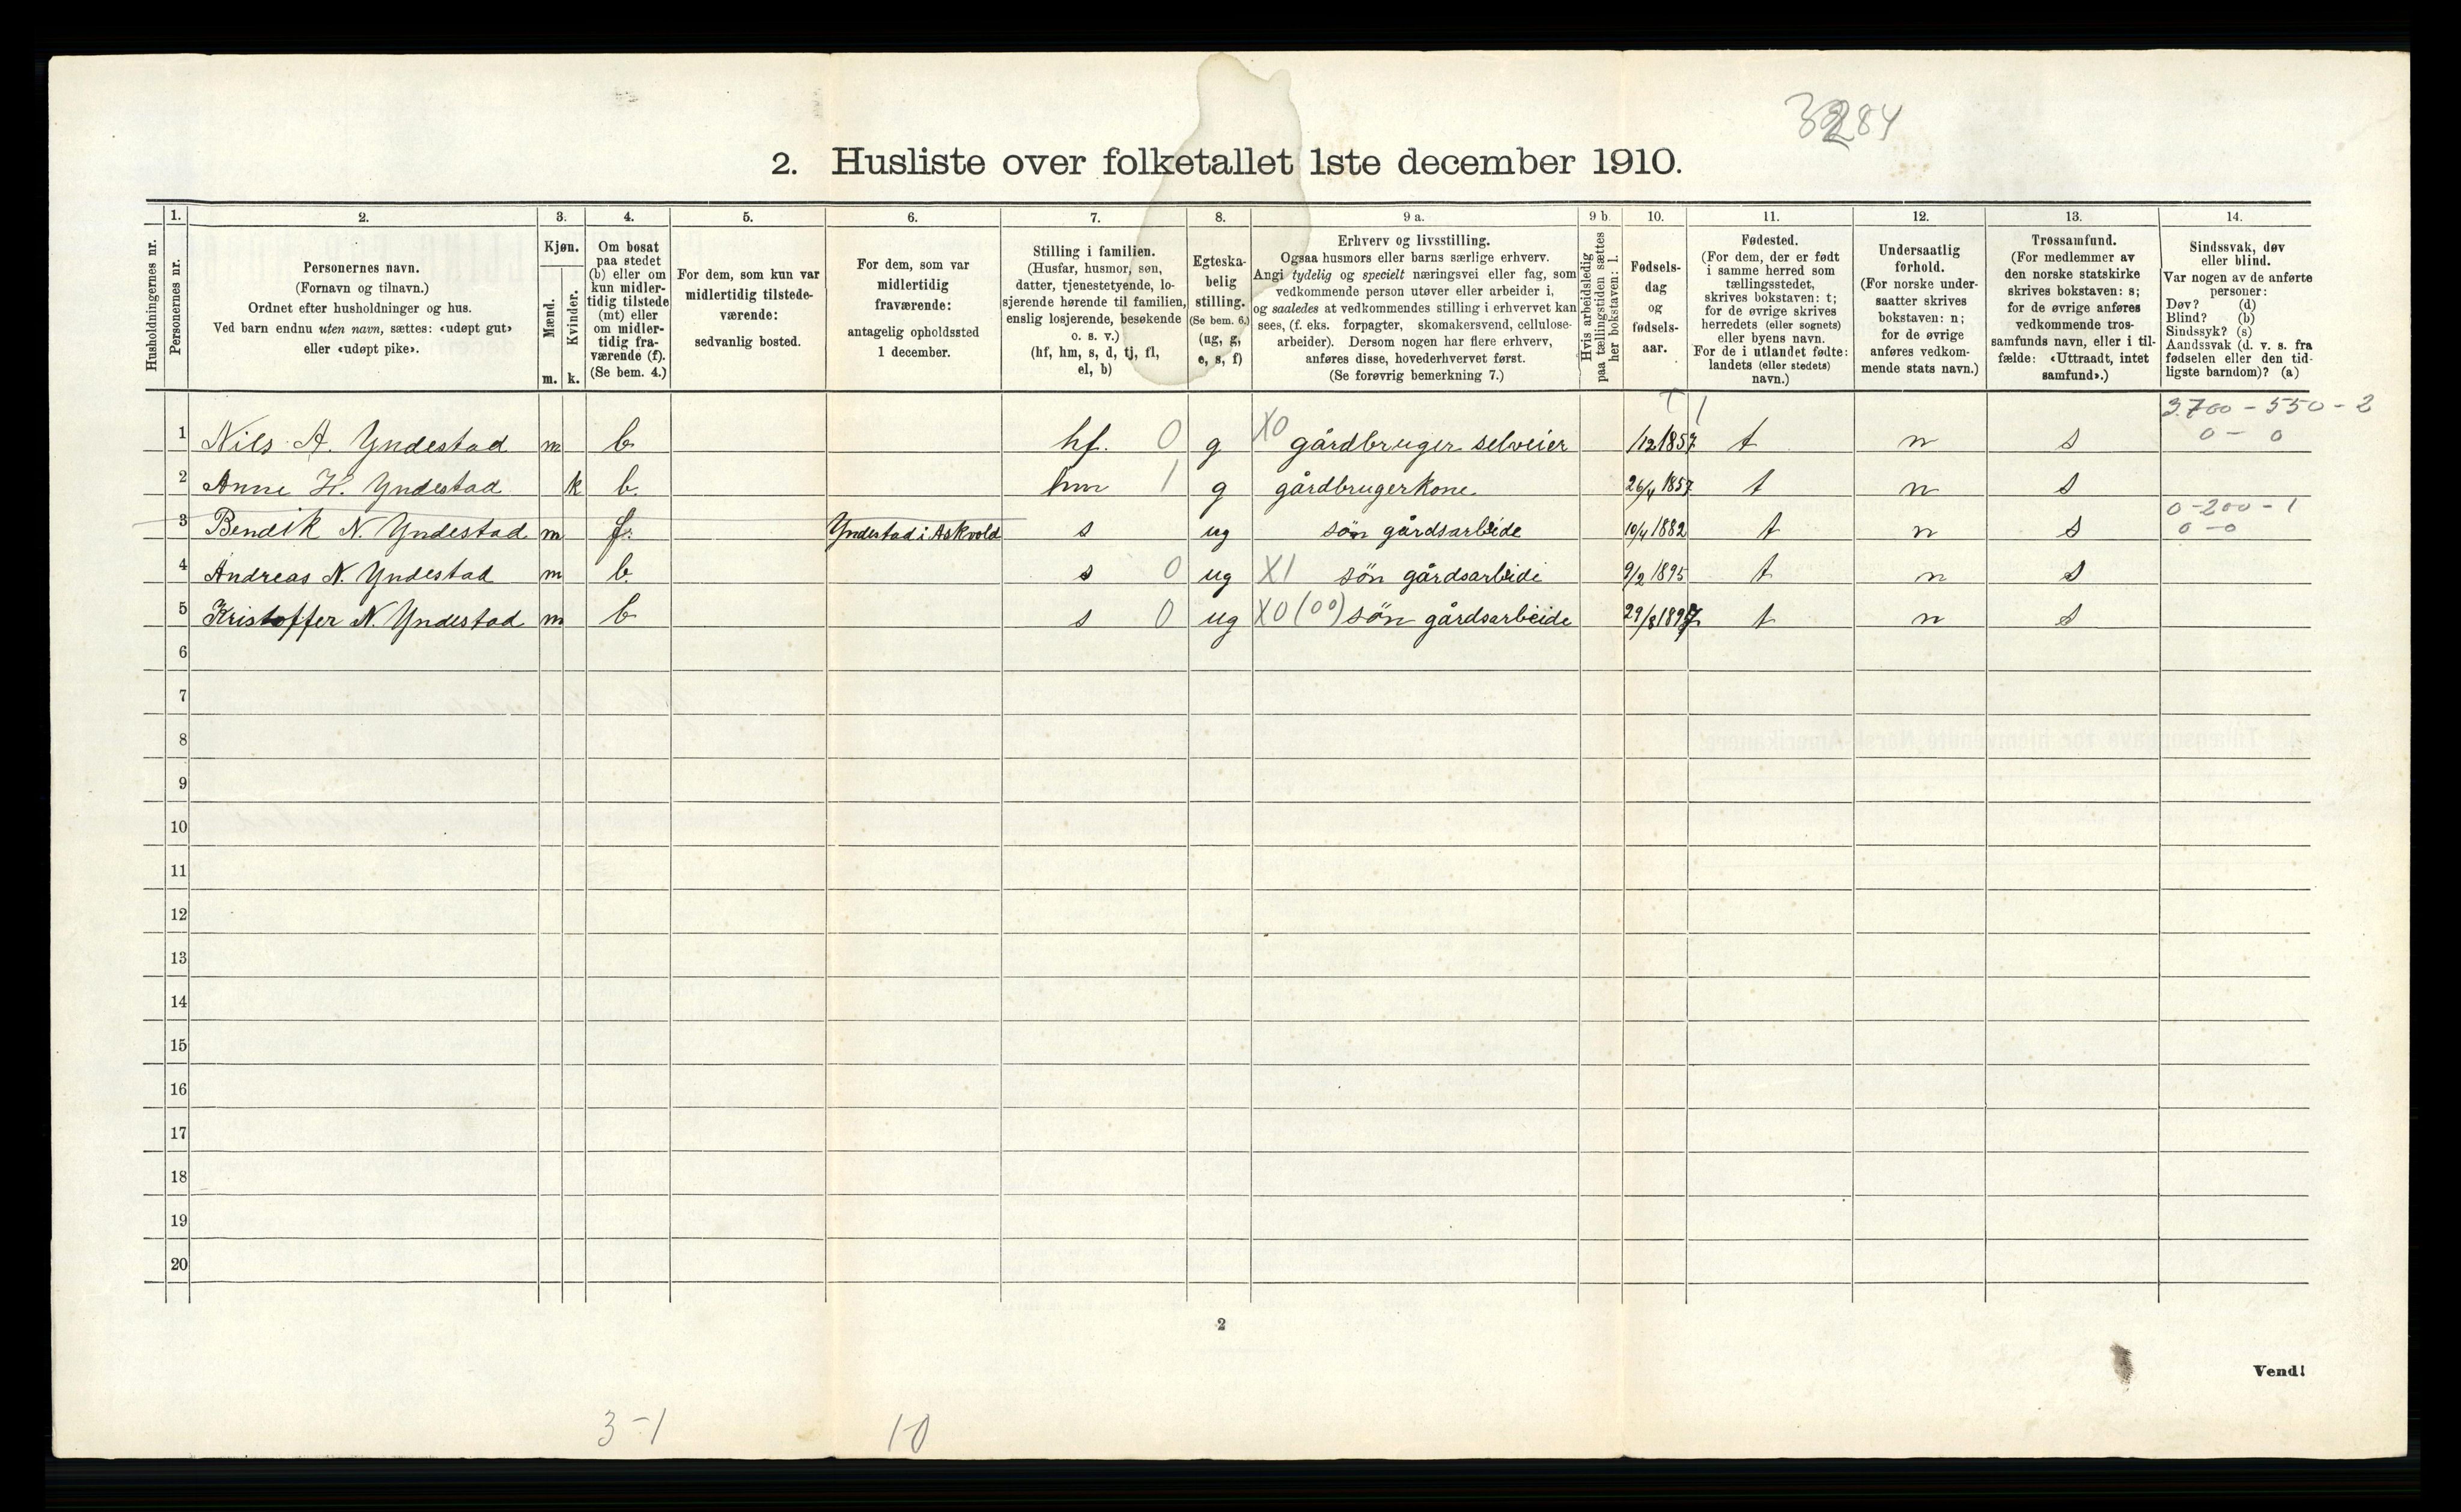 3284
2. Husliste over folketallet 1ste december 1910.
Husholdningernes nr.
1.
Personernes nr.
2.
Personernes navn.
(Fornavn og tilnavn.)
Ordnet efter husholdninger og hus.
Ved barn endnu uten navn, sættes: «udøpt gut»
eller «udøpt pike».
3.
Kjøn.
Mænd.
Kvinder.
m. k.
4.
Om bosat
paa stedet
(b) eller om
kun midler-
tidig tilstede
(mt) eller
om midler-
tidig fra-
værende (f).
(Se bem. 4.)
5.
For dem, som kun var
midlertidig tilstede-
værende:
sedvanlig bosted.
6.
For dem, som var
midlertidig
fraværende:
antagelig opholdssted
1 december.
7.
Stilling i familien.
(Husfar, husmor, søn,
datter, tjenestetyende, lo-
sjerende hørende til familien,
enslig losjerende, besøkende
o. s. v.)
(hf, hm, s, d, tj, fl,
el, b)
8.
Egteska-
belig
stilling.
(Se bem. 6.)
(ug, g,
e, s, f)
9 a.
Erhverv og livsstilling.
Ogsaa husmors eller barns særlige erhverv.
Angi tydelig og specielt næringsvei eller fag, som
vedkommende person utøver eller arbeider i,
og saaledes at vedkommendes stilling i erhvervet kan
sees, (f. eks. forpagter, skomakersvend, cellulose-
arbeider). Dersom nogen har flere erhverv,
anføres disse, hovederhvervet først.
(Se forøvrig bemerkning 7.)
9 b.
Hvis arbeidsledig
paa tællingstiden sættes
her bokstaven: l.
10.
Fødsels-
dag
og
fødsels-
aar.
11.
Fødested.
(For dem, der er født
i samme herred som
tællingsstedet,
skrives bokstaven: t;
for de øvrige skrives
herredets (eller sognets)
eller byens navn.
For de i utlandet fødte:
landets (eller stedets)
navn.)
12.
Undersaatlig
forhold.
(For norske under-
saatter skrives
bokstaven: n;
for de øvrige
anføres vedkom-
mende stats navn.)
13.
Trossamfund.
(For medlemmer av
den norske statskirke
skrives bokstaven: s;
for de øvrige anføres
vedkommende tros-
samfunds navn, eller i til-
fælde: «Uttraadt, intet
samfund».)
14.
Sindssvak, døv
eller blind.
Var nogen av de anførte
personer:
Døv? (d)
Blind? (b)
Sindssyk? (s)
Aandssvak (d. v. s. fra
fødselen eller den tid-
ligste barndom)? (a)
3.700 - 550 - 2
1 Nils A. Yndestad m b hf. 0 g X0 gårdbruger selveier 1/12 1857 t n s 0 - 0
2 Anne H. Yndestad k b. hm 1 g gårdbrugerkone 26/4 1857 t n s
0-200-1
3 Bendik N. Yndestad m f. Yndestad i Askvold s ug sön gårdsarbeide 10/4 1882 t n s 0-0
4 Andreas N. Yndestad m b. s 0 ug X1 sön gårdsarbeide 9/2 1895 t n s
5 Kristoffer N. Yndestad m b s 0 ug X0 (00) sön gårdsarbeide 29/8 1897 t n s
6
7
8
9
10
11
12
13
14
15
16
17
18
19
20
2
Vend!
3-1 10